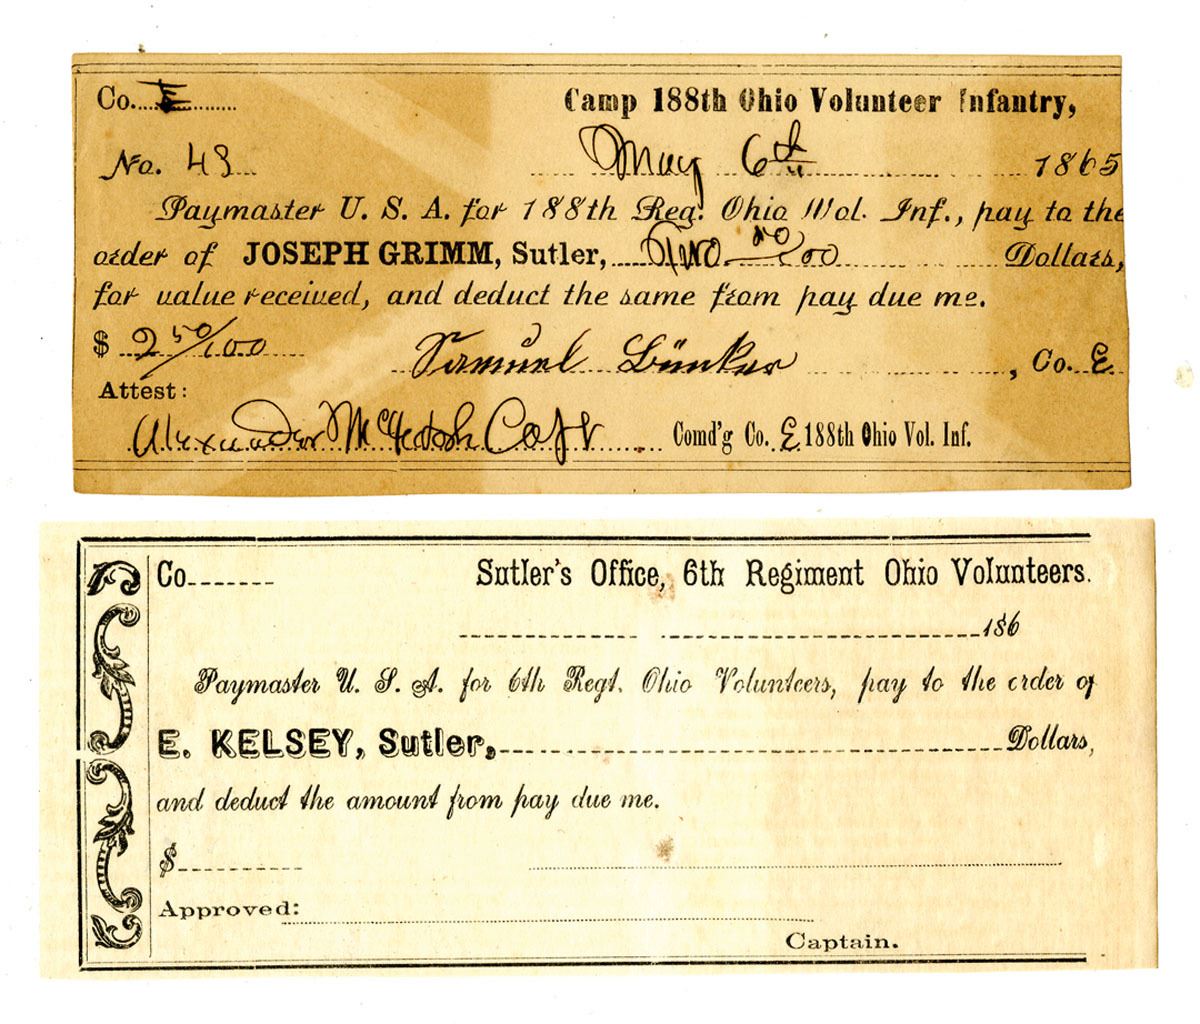 Co. E Camp 188th Ohio Volunteer Infantry,
No. 43 May 6th 1865
Paymaster U. S. A. for 188th Reg. Ohio Vol. Inf., pay to the
order of JOSEPH GRIMM, Sutler, Two 50/00 Dollars,
for value received, and deduct the same from pay due me.
$ 2 50/100 Samuel Bunker, Co. E
Attest:
Alexander McIntosh Capt Comd'g Co. E 188th Ohio Vol. Inf.
Co Sutler's Office, 6th Regiment Ohio Volunteers.
186
Paymaster U. S. A. for 6th Regt. Ohio Volunteers, pay to the order of
E. KELSEY, Sutler, Dollars,
and deduct the amount from pay due me.
$
Approved:
Captain.